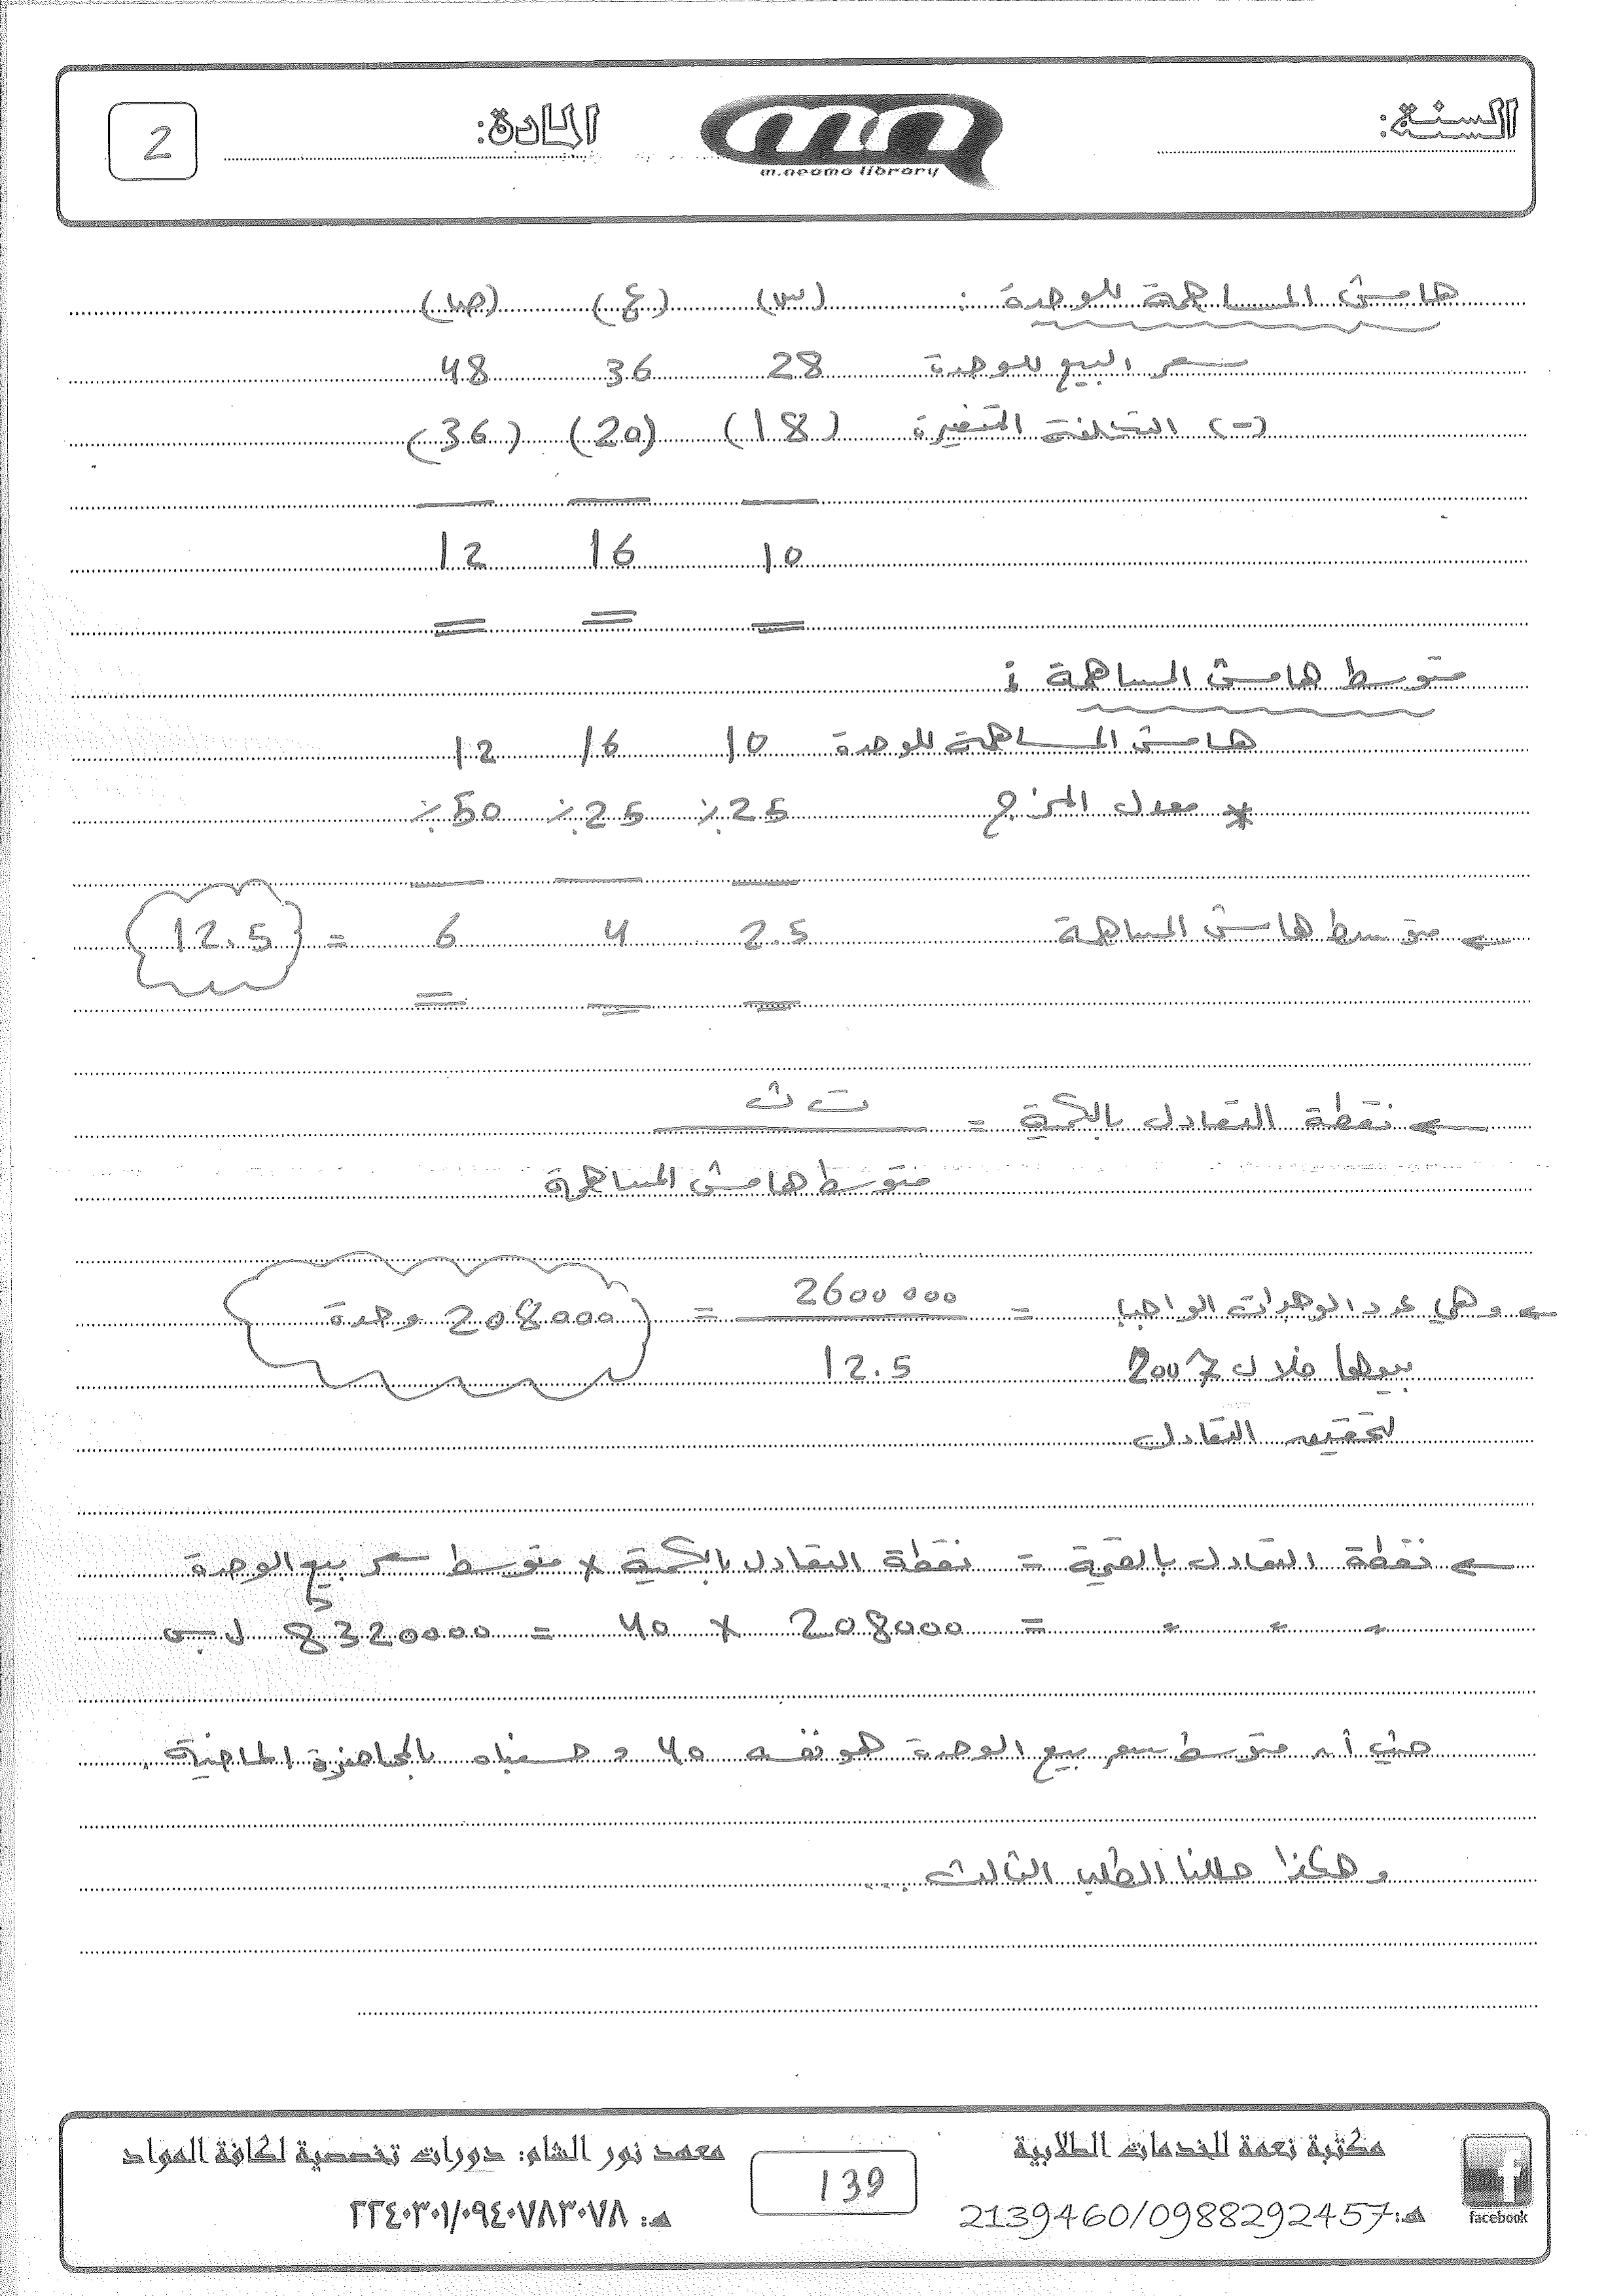 السنة:
m.neama library
المادة:
2
هامش المساهمة للوحدة : (س) (ع) (ص)
سعر البيع للوحدة 28 36 48
(-) التكلفة المتغيرة (18) (20) (36)
10 16 12
متوسط هامش المساهمة :
هامش المساهمة للوحدة 10 16 12
* معدل المزج 25٪ 25٪ 50٪
← متوسط هامش المساهمة 2.5 4 6 = 12.5
← نقطة التعادل بالكمية = ت ث
متوسط هامش المساهمة
← وهي عدد الوحدات الواجب = 2600 000 = 208000 وحدة
بيعها خلال 2007 12.5
لتحقيق التعادل
← نقطة التعادل بالقيمة = نقطة التعادل بالكمية × متوسط سعر بيع الوحدة
" " " = 208000 × 40 = 8320000 ل.س
حيث أن متوسط سعر بيع الوحدة هو نفسه 40 و حسبناه بالمحاضرة الماضية .
و هكذا حللنا الطلب الثالث ...
facebook
مكتبة نعمة للخدمات الطلابية
هـ: 2139460/0988292457
139
معهد نور الشام: دورات تخصصية لكافة المواد
هـ: ٢٢٤٠٣٠١/٠٩٤٠٧٨٣٠٧٨